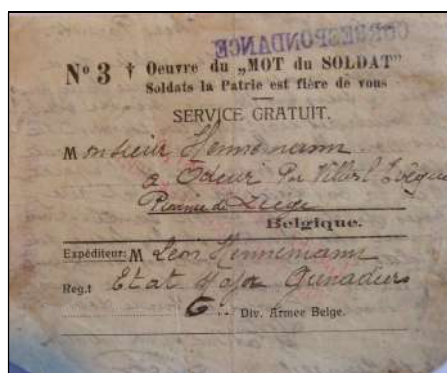 CORRESPONDANCE
Nº 3 † Oeuvre du „MOT du SOLDAT"
Soldats la Patrie est fière de vous
SERVICE GRATUIT.
Monsieur Hennemann
a Odeur Par Villers l'Evêque
Province de Liège
Belgique.
Expéditeur: M Leon Hennemann
Reg.t Etat Major Grenadiers
6 Div. Armee Belge.